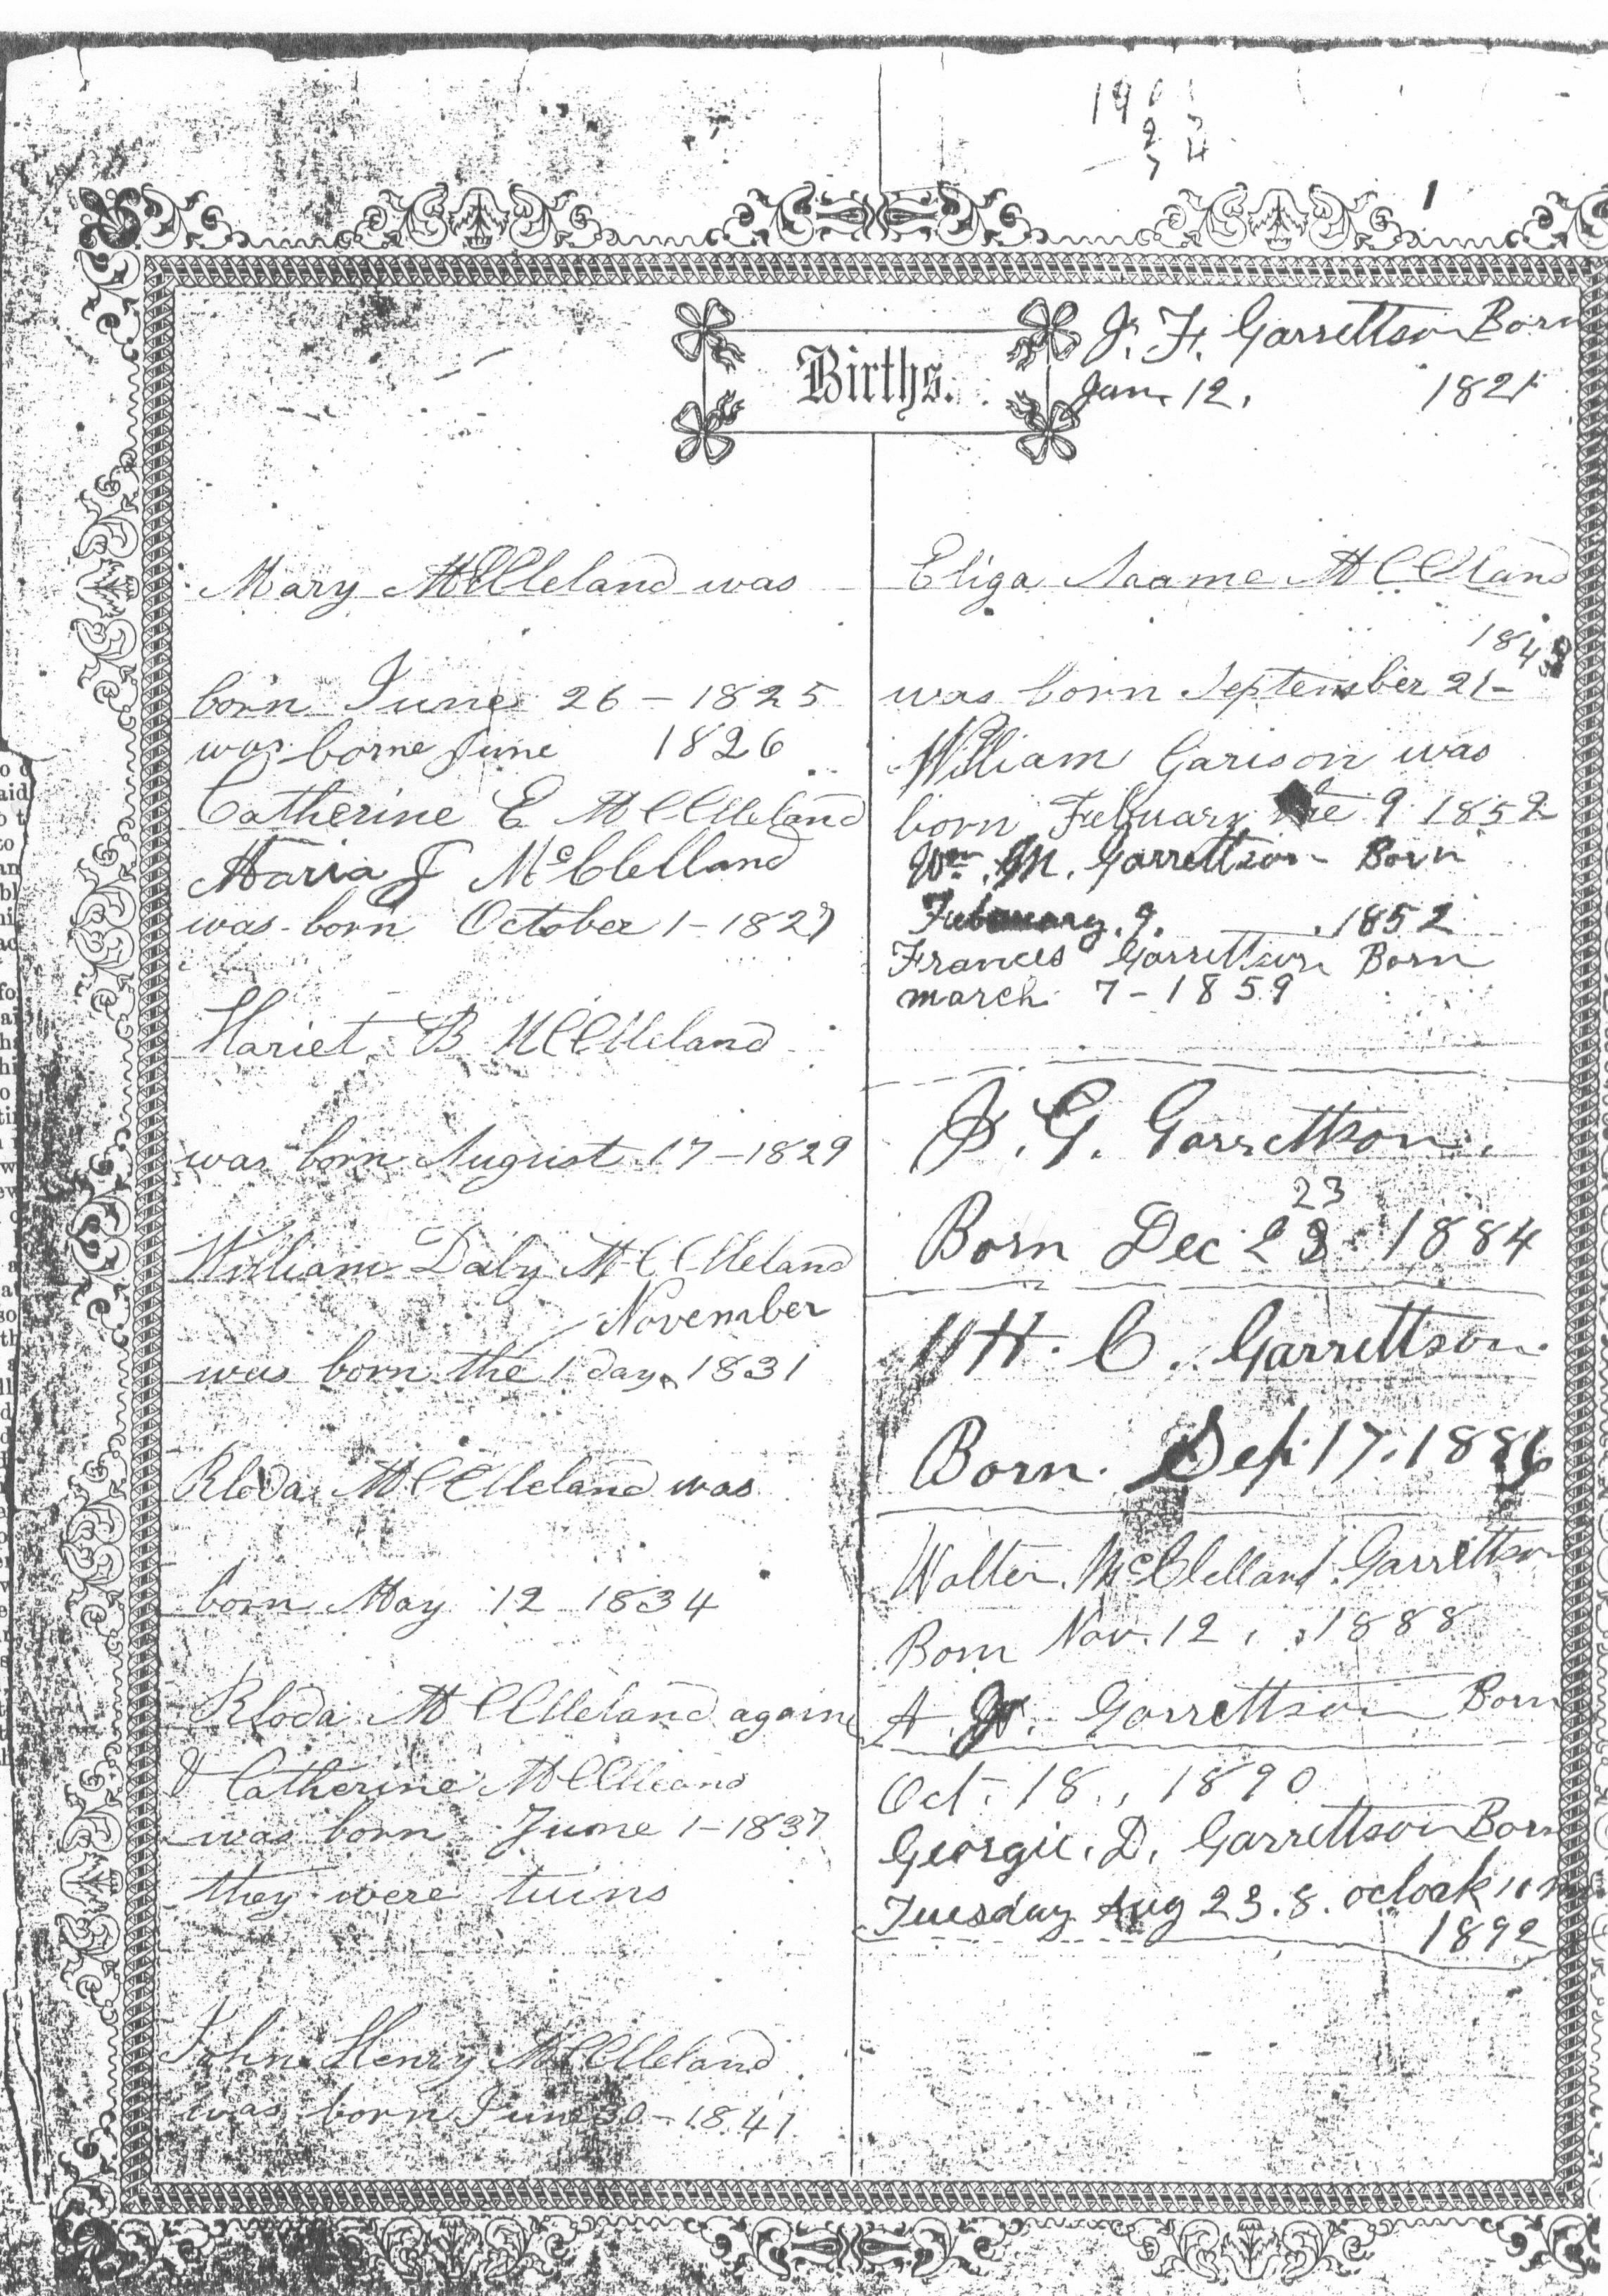 Births.
J. F. Garrettson Born
Jan. 12, 1821
Mary McClleland was
born June 26 - 1825
was borne June 1826
Catherine E McClleland
Maria J McClelland
was born October 1 - 1827
Hariet B McClleland
was born August 17 - 1829
William Daby McClleland
November
was born the 1 day 1831
Rloda McClleland was
born May 12 1834
Rloda McClleland again
& Catherine McClleand
was born June 1 - 1837
they were twins
John Henry McClleland
was born June 30 - 1841
Eliga McClland
184
was born September 21 -
William Garison was
born Febuary the 9 1852
Wm. M. Garrettson Born
9. 1852
Frances Garrettson Born
march 7 - 1859
J. G. Garrettson.
23
Born Dec 23 1884
H. C. Garrettson.
Born. Sep. 17. 1886
Walter McClelland Garrettson
Born Nov. 12, 1888
A. Garrettson Born
Oct. 18., 1890
Georgie. D. Garrettson Born
Tuesday Aug 23. 8. ocloak
1892